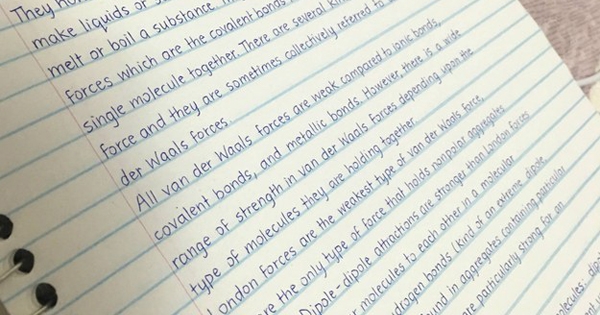 They
make liquids or
melt or boil a substance.
forces which are the covalent bonds
single molecule together. There are several
force and they are sometimes collectively referred to
der Waals forces.
All van der Waals forces are weak compared to ionic bonds,
covalent bonds, and metallic bonds. However, there is a wide
range of strength in van der Waals forces depending upon the
type of molecules they are holding together.
London forces are the weakest type of van der Waals force,
are the only type of force that holds nonpolar aggregates
Dipole-dipole attractions are stronger than London forces
molecules to each other in a molecular
hydrogen bonds (kind of an extreme dipole
found in aggregates containing particular
are particularly strong for an
molecules: